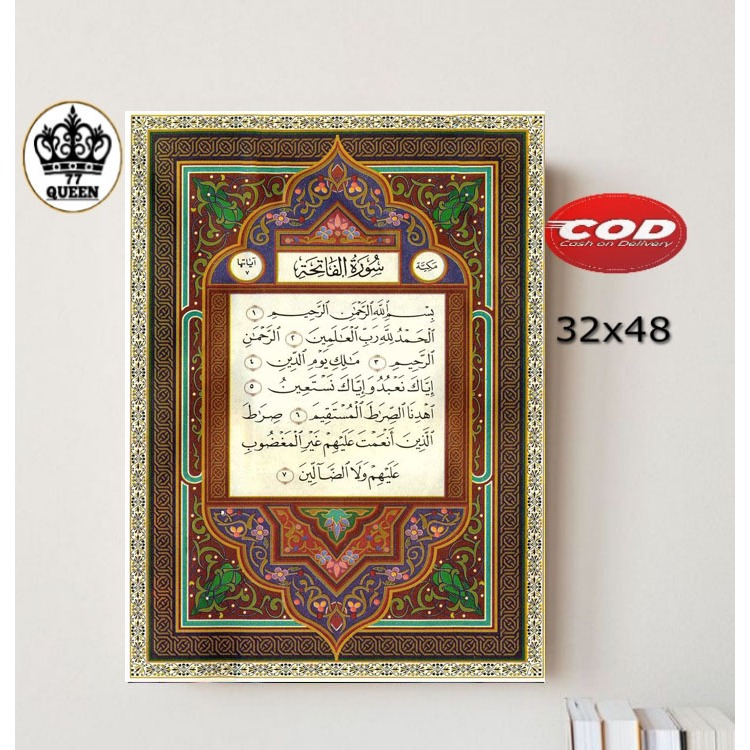 77
QUEEN
COD
Cash on Delivery
32x48
مكية
سورة الفاتحة
آياتها ٧
بِسْمِ ٱللَّهِ ٱلرَّحْمَٰنِ ٱلرَّحِيمِ ١
ٱلْحَمْدُ لِلَّهِ رَبِّ ٱلْعَٰلَمِينَ ٢ ٱلرَّحْمَٰنِ
ٱلرَّحِيمِ ٣ مَٰلِكِ يَوْمِ ٱلدِّينِ ٤
إِيَّاكَ نَعْبُدُ وَإِيَّاكَ نَسْتَعِينُ ٥
ٱهْدِنَا ٱلصِّرَٰطَ ٱلْمُسْتَقِيمَ ٦ صِرَٰطَ
ٱلَّذِينَ أَنْعَمْتَ عَلَيْهِمْ غَيْرِ ٱلْمَغْضُوبِ
عَلَيْهِمْ وَلَا ٱلضَّآلِّينَ ٧